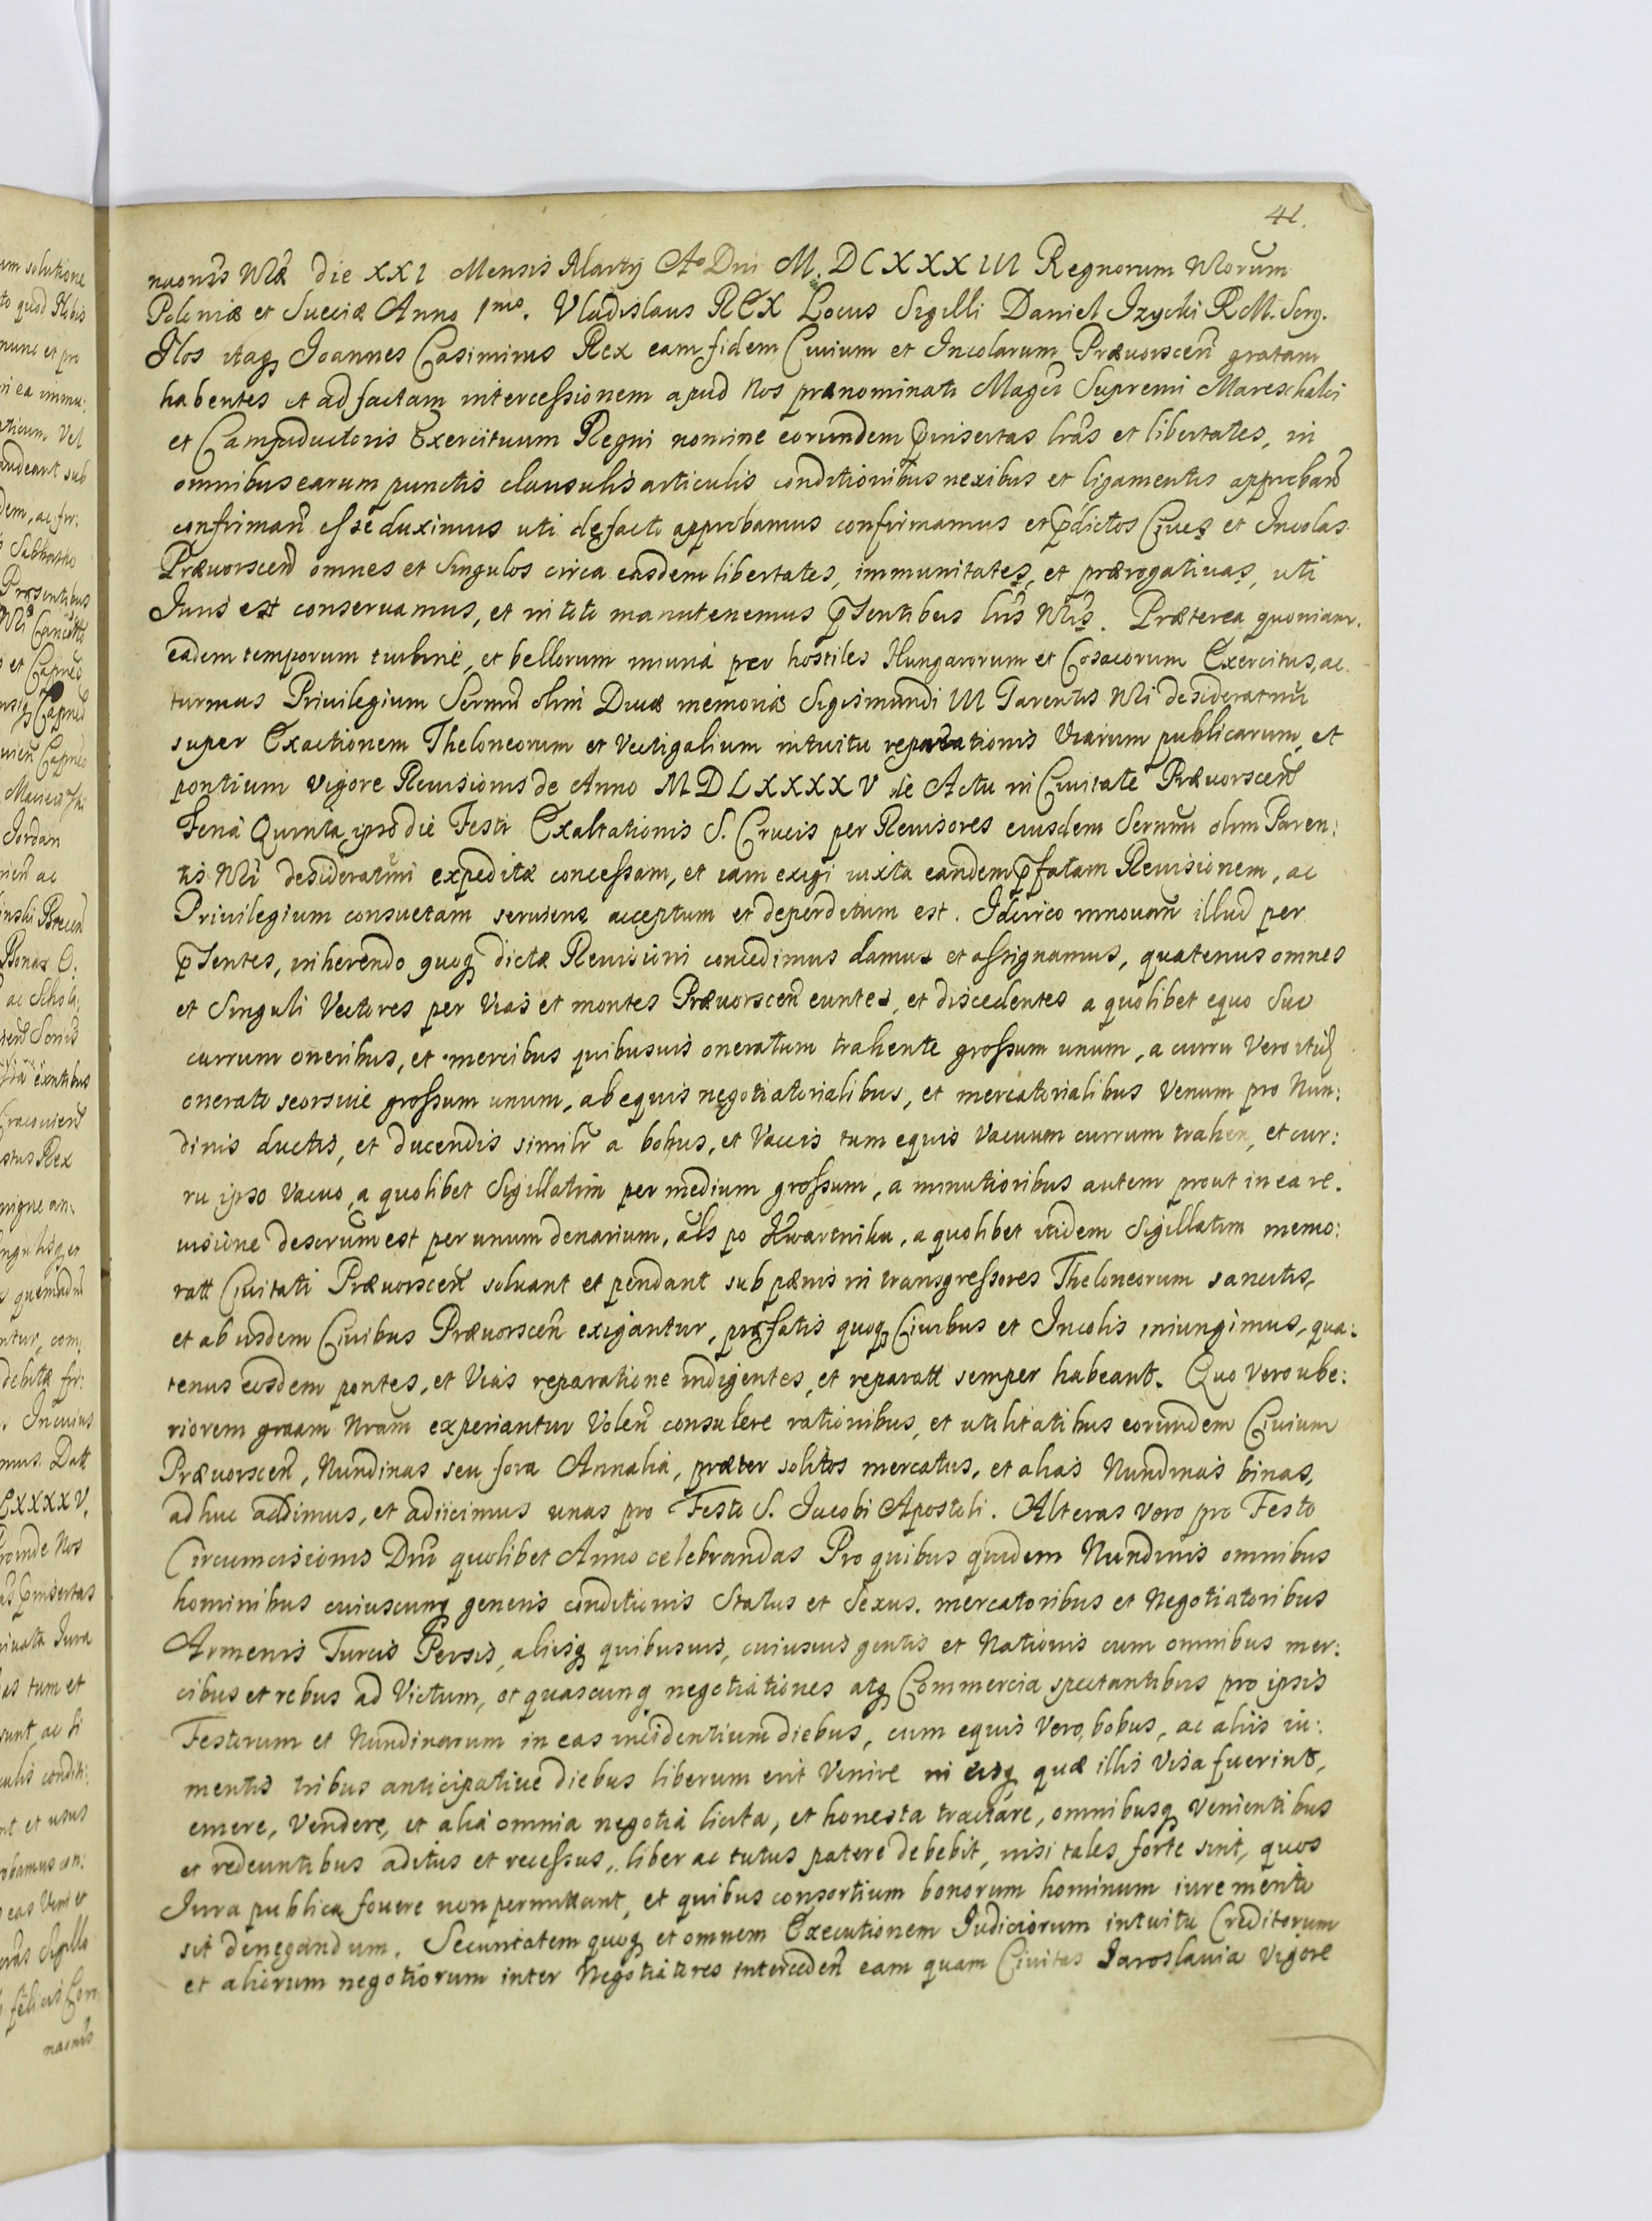 41.
nuonis Nræ die XXI Mensis Martij Ao Dni M. DCXXXIII Regnorum Nrorum
Poloniæ et Sueciæ Anno 1mo. Vladislaus REX Locus Sigilli Daniel Izycki RM. Scrg.
Nos itaq Joannes Casimirus Rex eam fidem Ciuium et Incolarum Præuorscen gratam
habentes et ad factam intercessionem apud Nos prænominati Magci Supremi Mareschalci
et Campiductoris Exercituum Regni nomine eorundem pinsertas lras et libertates, in
omnibus earum punctis clausulis articulis conditionibus nexibus et ligamentis approband
confirmand esse duximus uti de facto approbamus confirmamus et pdictos Ciues et Incolas
Præuorscen omnes et singulos circa easdem libertates, immunitates, et prærogatiuas, uti
Juris est conseruamus, et in toto manutenemus psentibus lris Nris. Præterea quoniam.
eadem temporum turbine, et bellorum iniuria per hostiles Hungarorum et Cosacorum Exercitus, ac
turmas Priuilegium Sermi olim Diuæ memoriæ Sigismundi III Parentis Nri desideratmi
super Exactionem Theloneorum et Vectigalium intuitu reparationis Viarum publicarum, et
pontium vigore Reuisionis de Anno MDLXXXXV de Actu in Ciuitate Præuorscen
Feria Quinta ipso die Festi Exaltationis S. Crucis per Reuisores eiusdem Sermi olim Paren:
tis Nri desideratmi expeditæ concessam, et iam exigi iuxta eandem pfatam Reuisionem, ac
Priuilegium consuetam seruiens acceptum et deperditum est. Idcirco innouan illud per
psentes, inherendo quoq dictæ Reuisioni concedimus damus et assignamus, quatenus omnes
et singuli Vectores per Vias et montes Præuorscen euntes, et discedentes a quolibet equo suo
currum oneribus, et mercibus quibusuis oneratum trahente grossum unum, a curru vero
onerato seorsiue grossum unum, ab equis negotiatorialibus, et mercatorialibus Venum pro Nun:
dinis ductis, et ducendis similr a bobus, et Vaccis tum equis Vacuum currum trahen, et cur:
ru ipso vacuo, a quolibet Sigillatim per medium grossum, a minutioribus autem prout in ea re.
uisione descrum est per unum denarium, als po Kwartniku, a quolibet itidem Sigillatim memo:
ratt Ciuitati Præuorscen soluant et pendant sub pænis in transgressores Theloneorum sancitis,
et ab iisdem Ciuibus Præuorscen exigantur, præfatis quoq Ciuibus et Incolis iniungimus, qua:
tenus eosdem pontes, et Vias reparatione indigentes, et reparatt semper habeant. Quo vero ube:
riorem graam Nram experiantur Volen consulere rationibus, et utilitatibus eorundem Ciuium
Præuorscen, Nundinas seu fora Annalia, præter solitos mercatus, et alias Nundinas binas,
adhuc addimus, et adiicimus unas pro Festo S. Jacobi Apostoli. Alteras vero pro Festo
Circumcisionis Dni quolibet Anno celebrandas Pro quibus quidem Nundinis omnibus
hominibus cuiuscunq generis conditionis Status et Sexus. mercatoribus et Negotiatoribus
Armenis Turcis Persis, aliisq quibusuis, cuiusuis gentis et Nationis cum omnibus mer:
cibus et rebus ad Victum, et quascunq negotiationes atq Commercia spectantibus pro ipsis
Festorum et Nundinarum in eas incidentium diebus, cum equis vero, bobus, ac aliis iu:
mentis tribus anticipatiue diebus liberum erit Venire in eisq quæ illis visa fuerint,
emere, Vendere, et alia omnia negotia licita, et honesta tractare, omnibusq Venientibus
et redeuntibus aditus et recessus, liber ac tutus patere debebit, nisi tales forte sint, quos
Jura publica fouere non permittant, et quibus consortium bonorum hominum iure merito
sit denegandum. Securitatem quoq et omnem Executionem Judiciorum intuitu Creditorum
et aliorum negotiorum inter Negotiatores interceden eam quam Ciuitas Jaroslauia Vigore